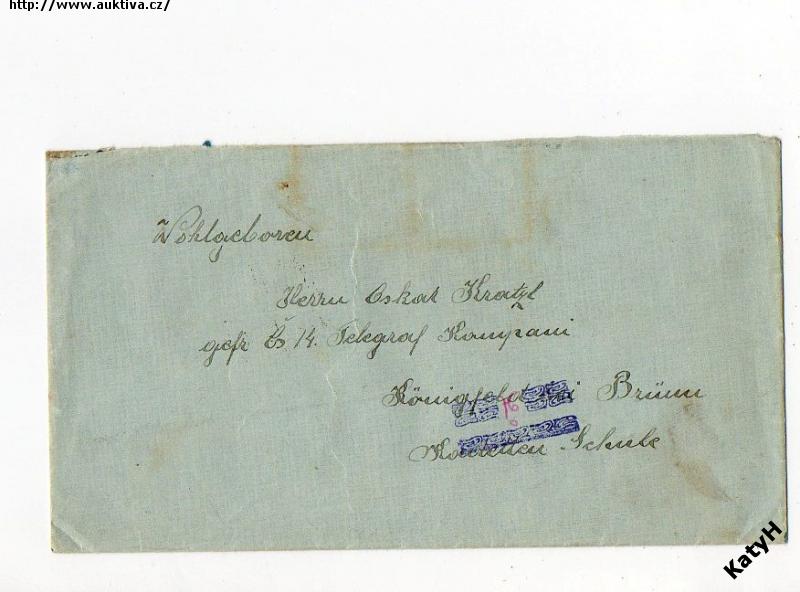 http://www.auktiva.cz/
Wohlgeboren
Herrn Oskar Kratzl
gefr Čs 14. Telegraf Kompani
Königfeld bei Brünn
Kadetten Schule
KatyH